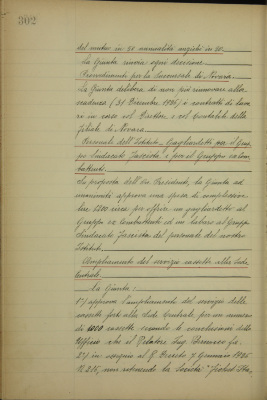 302
del mutuo in 50 annualità anziché in 30.
La Giunta rinvia ogni decisione.
Provvedimenti per la Succursale di Novara
La Giunta delibera di non più rinnovare alla
scadenza (31 Dicembre 1925) i contratti di lavoro
in corso col Direttore e col Contabile della
Filiale di Novara.
Personale dell'Istituto - Gagliardetti per il Gruppo
Sindacato Fascista e per il Gruppo ex Com
battenti.
Su proposta dell'On. Presidente, la Giunta ad
unanimità approva una spesa di complessive
lire circa per offrire un gagliardetto al
Gruppo ex Combattenti ed un labaro al Gruppo
Sindacato Fascista del personale del nostro
Istituto.
Ampliamento del servizio cassette alla Sede
Centrale.
La Giunta:
1°) approva l'ampliamento del servizio delle
cassette forti alla Sede Centrale per un numero
di 1020 cassette secondo le conclusioni della
che il Relatore Ing.
2°) in seguito al R. Decreto 7 Gennaio 1925
N. 215, non la Società